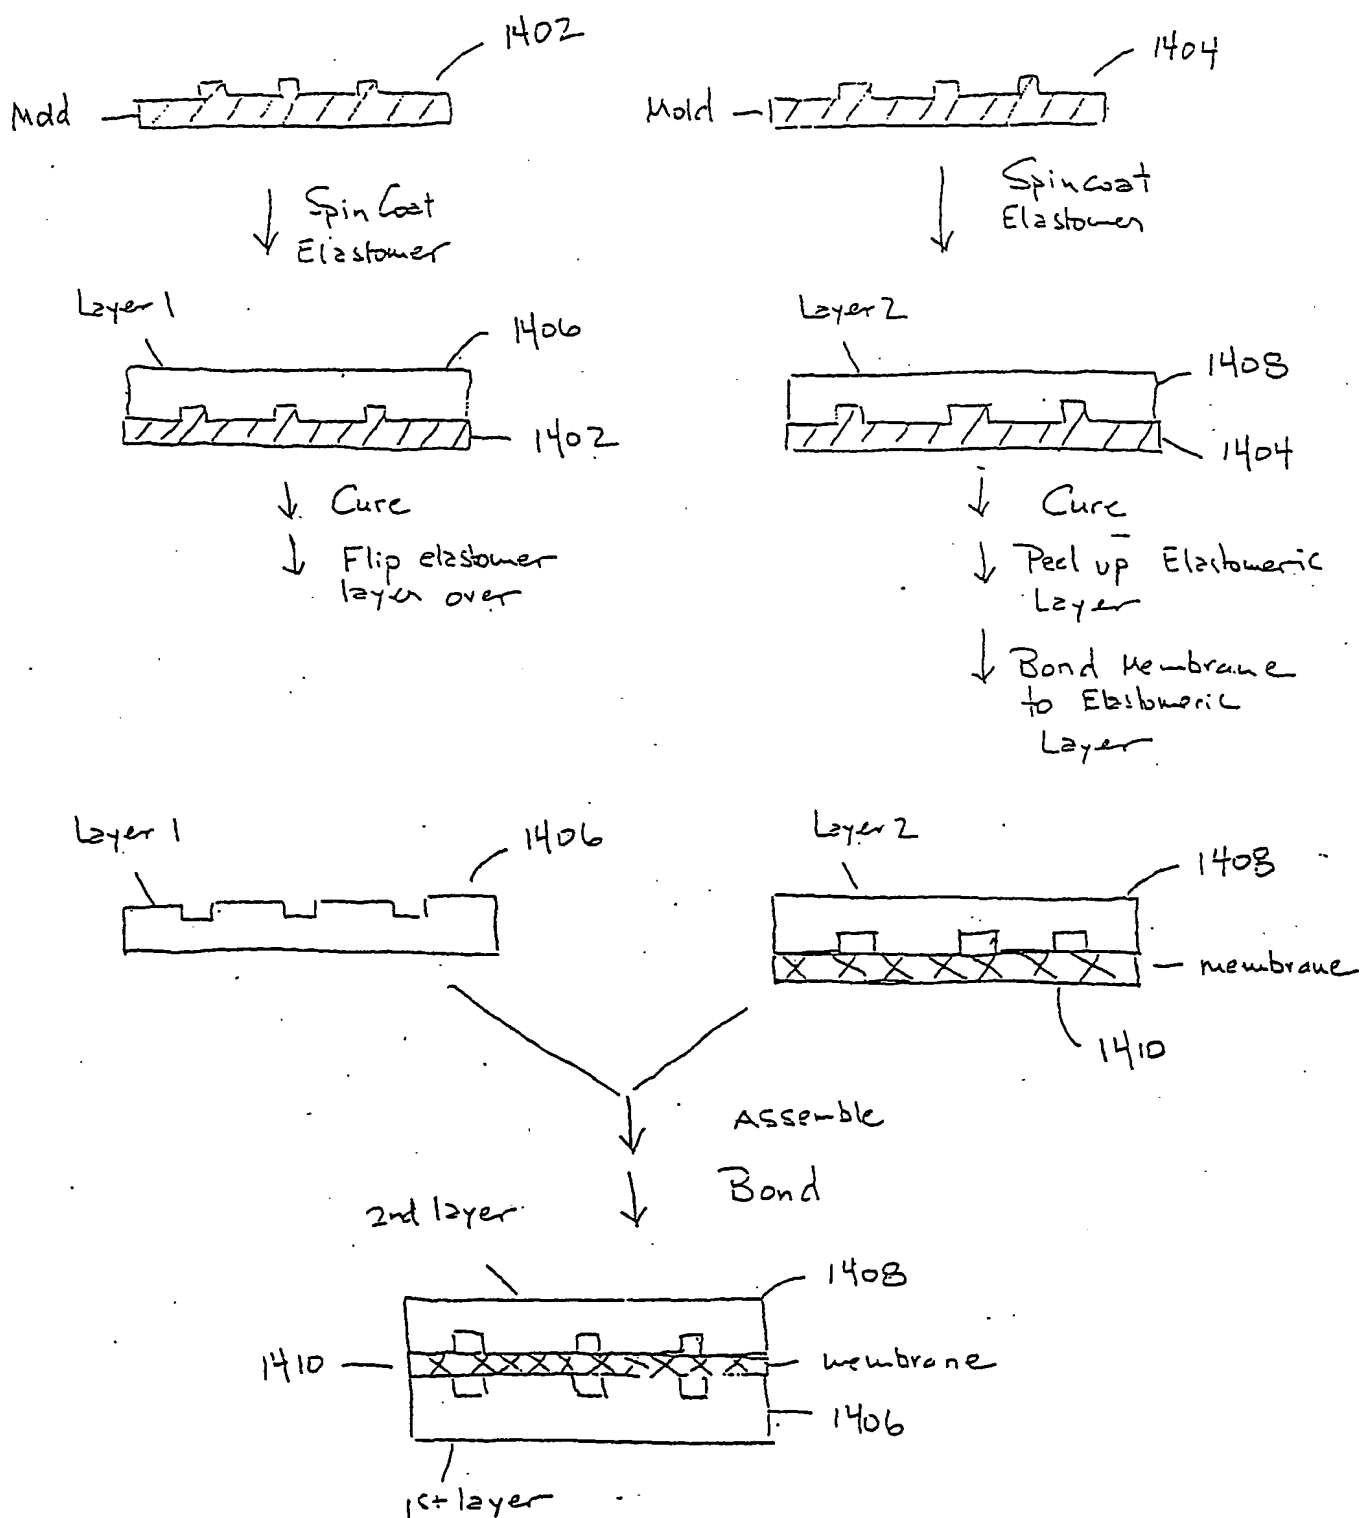 1402
Mold
Spin Coat
Elastomer
Layer 1
1406
1402
Cure
Flip elastomer
layer over
1404
Mold
Spincoat
Elastomer
Layer 2
1408
1404
Cure
Peel up Elastomeric
Layer
Bond Membrane
to Elastomeric
Layer
Layer 1
1406
Layer 2
1408
membrane
1410
Assemble
Bond
2nd layer
1408
1410
membrane
1406
1st layer